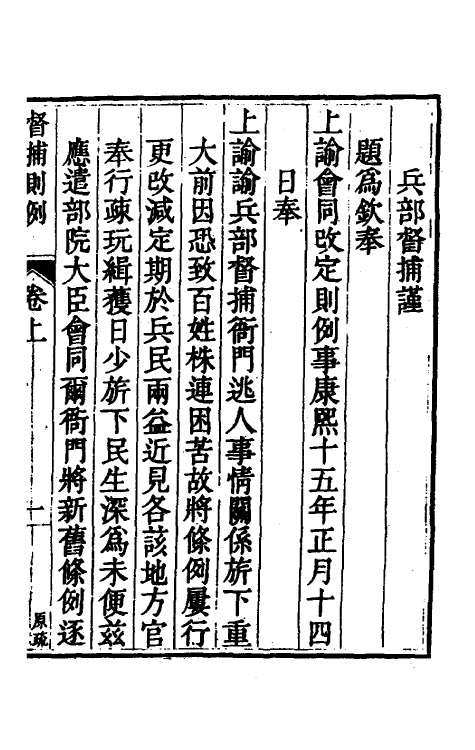 兵部督捕謹
題爲欽奉
上諭會同改定則例事康熙十五年正月十四
日奉
上諭諭兵部督捕衙門逃人事情關係旂下重
大前因恐致百姓株連困苦故將條例屢行
更改減定期於兵民兩益近見各該地方官
奉行疎玩緝獲日少旂下民生深爲未便茲
應遣部院大臣會同爾衙門將新舊條例逐
督捕則例
卷上
一
原疏